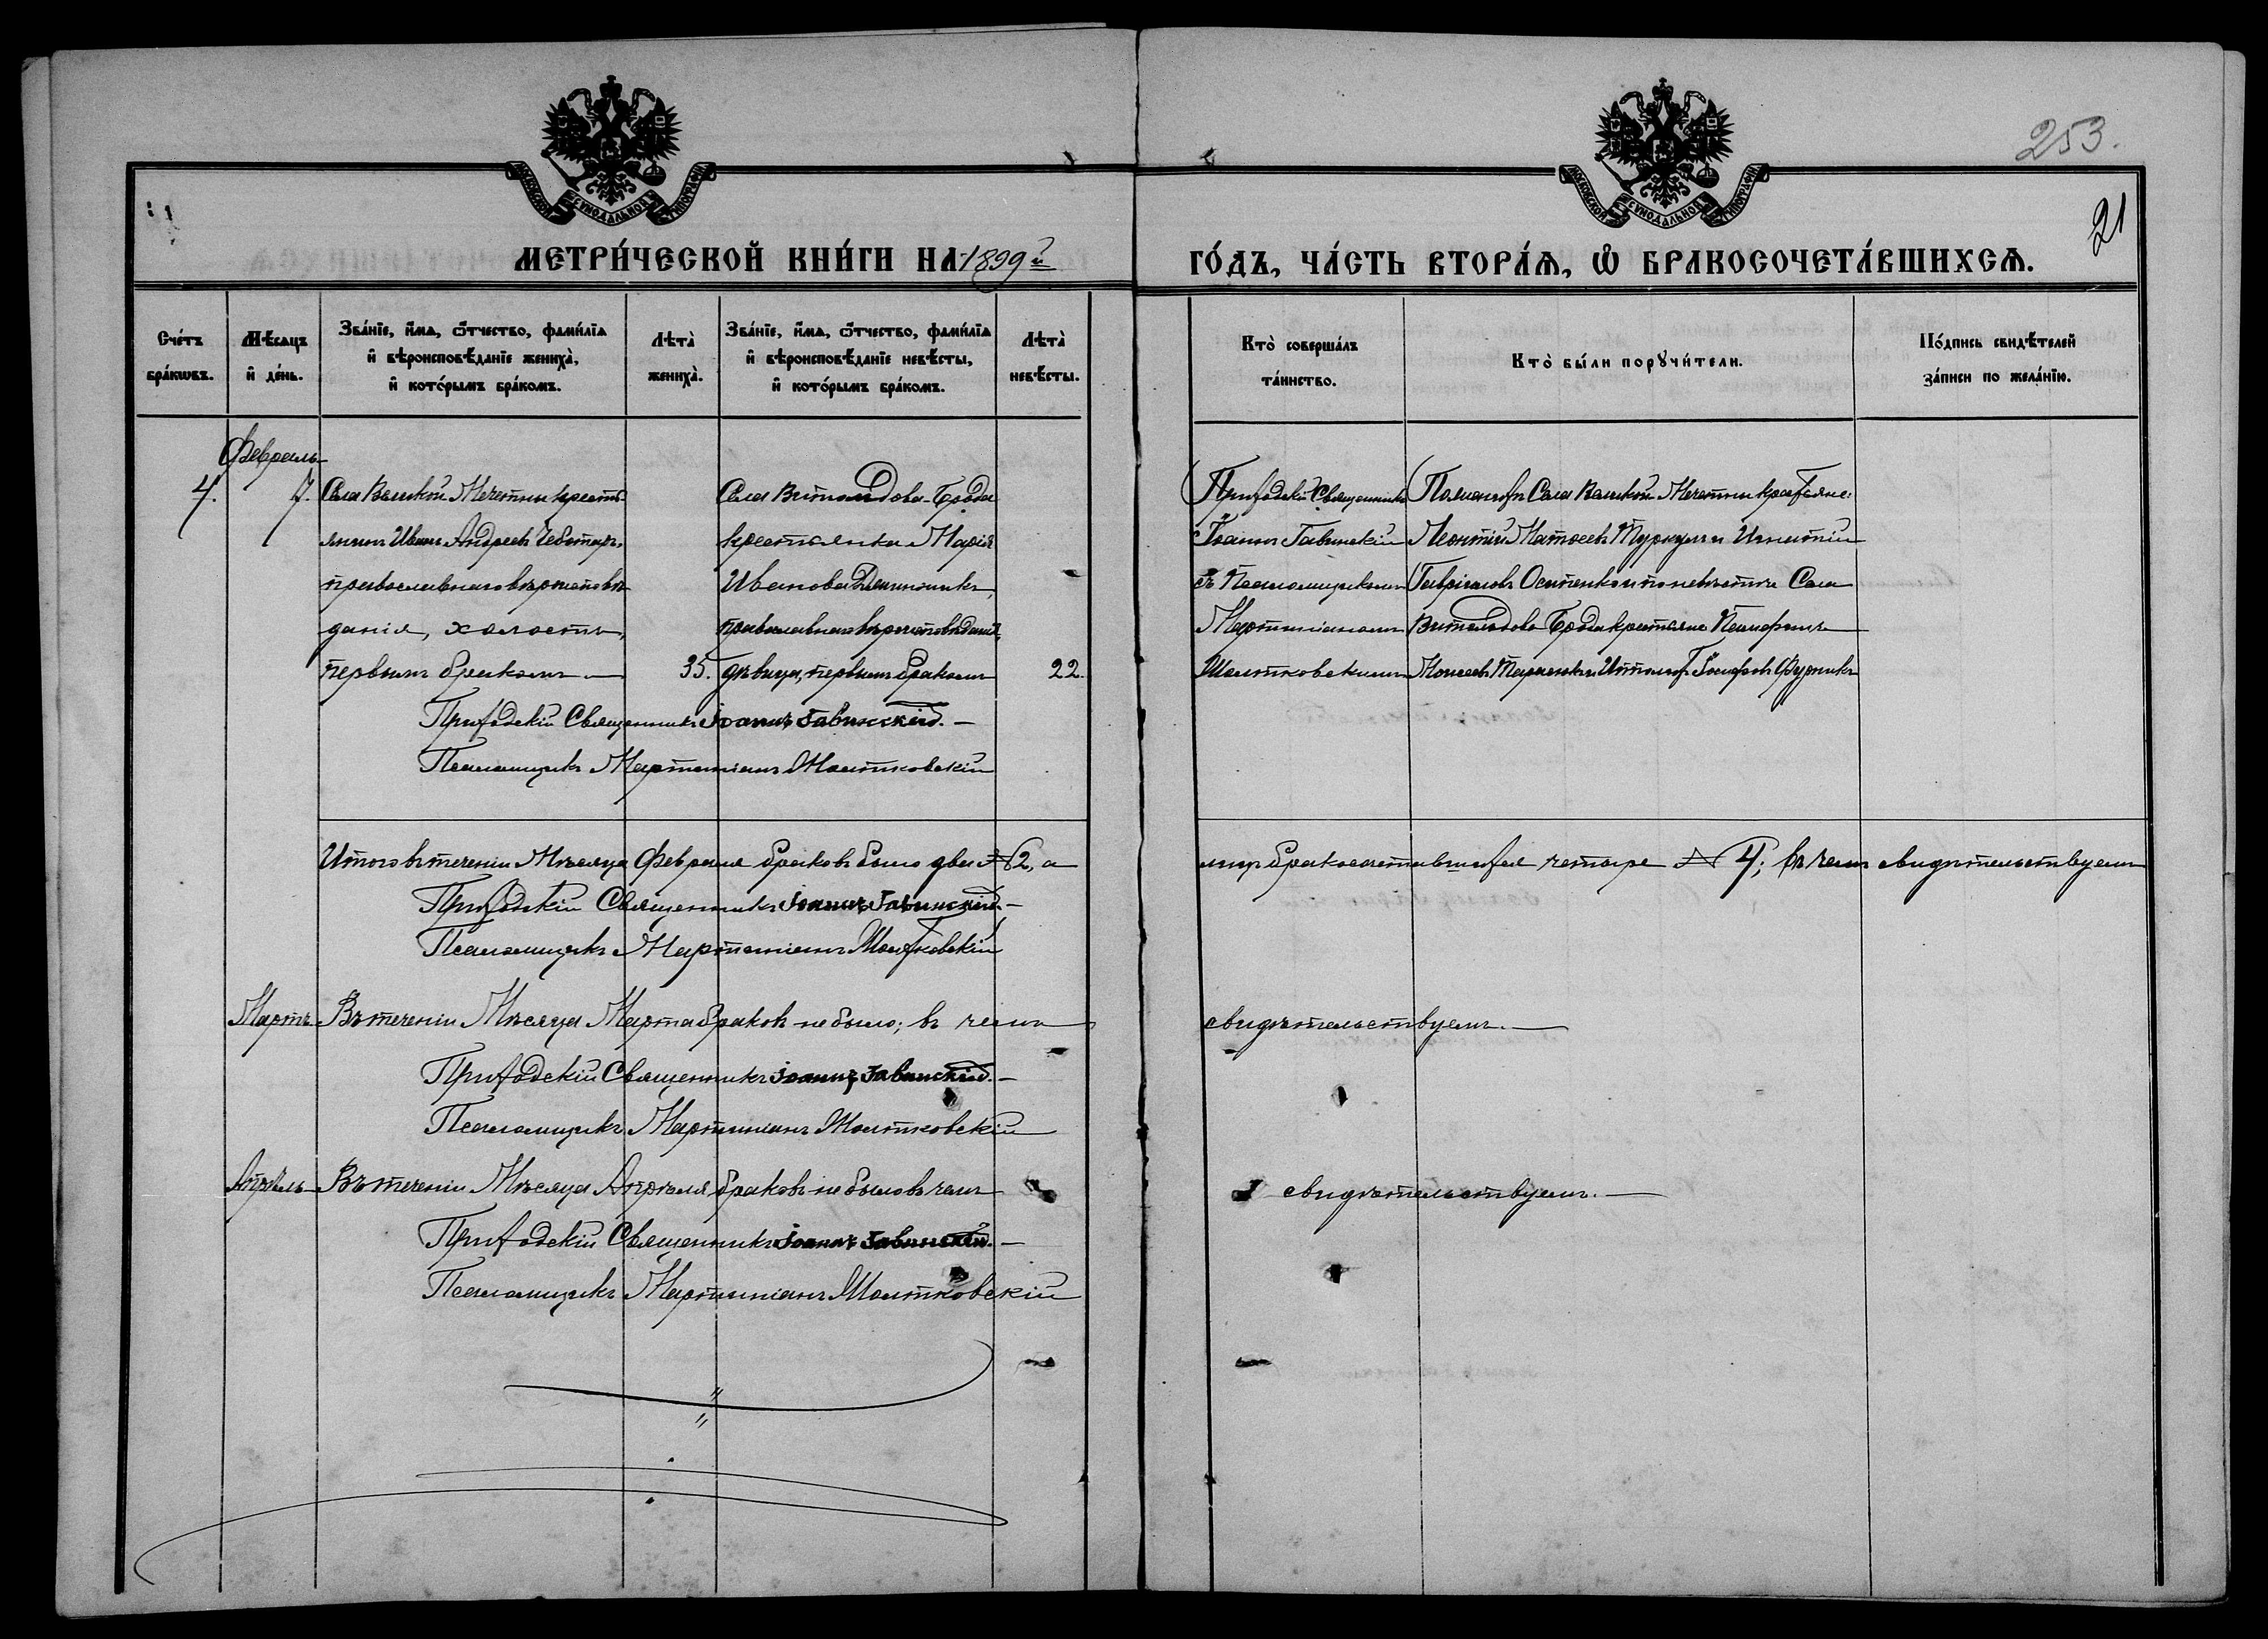 МОСКОВСКОЙ СѴНОДАЛЬНОЙ ТИПОГРАФІИ
МОСКОВСКОЙ СѴНОДАЛЬНОЙ ТИПОГРАФІИ
253.
21
МЕТРИ́ЧЕСКОЙ КНИ́ГИ НА 1899й
ГО́ДЪ, ЧА́СТЬ ВТОРА́Ѧ, Ѽ БРАКОСОЧЕТА́ВШИХСѦ.
Сче́тъ бра́кѡвъ.
Мѣ́сяцъ и де́нь.
Зва́нїе, и́мѧ, ѻ́тчество, фами́лїа и вѣроисповѣ́данїе жениха̀, и кото́рымъ бра́комъ.
Лѣта̀ жениха̀.
Зва́нїе, и́мѧ, ѻ́тчество, фами́лїа и вѣроисповѣ́данїе невѣ́сты, и кото́рымъ бра́комъ.
Лѣта̀ невѣ́сты.
Кто̀ соверша́лъ та́инство.
Кто̀ бы́ли порꙋчи́тели.
По́дпись свидѣ́телей за́писи по жела́нїю.
Февраль
4.
7.
Села Великой Мечетни кресть-
янинъ Иванъ Андреевъ Чеботарь,
православнаго вѣроисповѣ-
данія, холостъ,
первымъ бракомъ
35.
Села Витольдова-Брода
крестьянка Марія
Иванова
православнаго вѣроисповѣданія,
дѣвица, первымъ бракомъ
22.
Приходскій Священникъ
Іоаннъ Гавинскій
съ Псаломщикомъ
Мартиніаномъ
Шолтковскимъ
По женихѣ Села Великой Мечетни крестьяне:
Леонтій Матѳеевъ Туркулъ и Игнатій
Гавріиловъ Остапенко и по невѣстѣ Села
Витольдова Брода крестьяне
Моисеевъ и Іосифовъ Фурникъ
Приходскій Священникъ Іоаннъ Гавинскій.
Псаломщикъ Мартиніанъ Шолтковскій
Итого въ теченіи Мѣсяца Февраля браковъ было два № 2, а
лицъ бракосочетавшихся четыре № 4; въ чемъ свидѣтельствуемъ
Приходскій Священникъ Іоаннъ Гавинскій.
Псаломщикъ Мартиніанъ Шолтковскій
Мартъ Въ теченіи Мѣсяца Марта браковъ не было; въ чемъ
свидѣтельствуемъ.
Приходскій Священникъ Іоаннъ Гавинскій.
Псаломщикъ Мартиніанъ Шолтковскій
Апрѣль Въ теченіи Мѣсяца Апрѣля браковъ не было въ чемъ
свидѣтельствуемъ.
Приходскій Священникъ Іоаннъ Гавинскій.
Псаломщикъ Мартиніанъ Шолтковскій